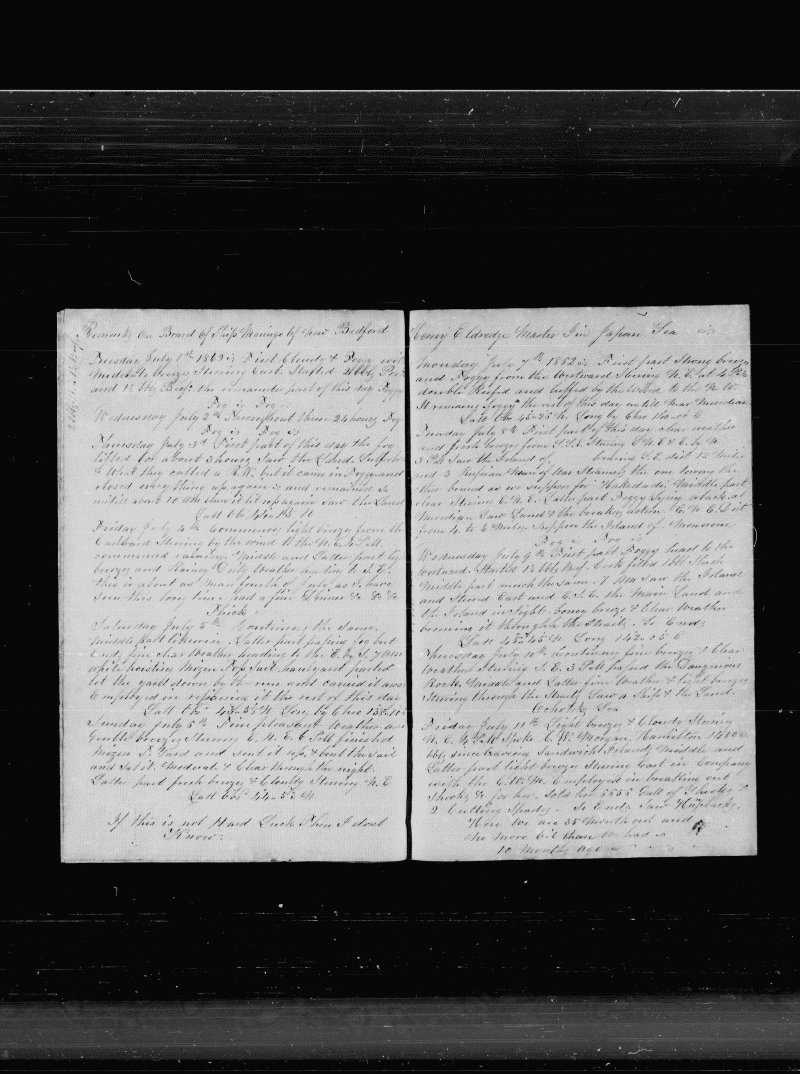 Remarks On Board Of Ship Marengo Of New Bedford
Tuesday July 1th 1862 First Cloudy & Foggy with
Moderate Breeze Steering East. Started 2 bbls
and 1½ bbls Beef. the remainder part of this day Foggy
Fog is Fog
Wednesday July 2th Throughout these 24 hours Fog
Fog is Fog is
Thursday July 3d First part of this day the fog
lifted for about 3 hours Saw the Land,
& What they called a R.W. but it came in Foggy and
closed every thing up again & and remained so
until about 10 AM then it lit up again Saw the Land
Latt Obs 44 N
Friday July 4th Commences light breeze from the
Eastward Steering by the wind to the N.E. 4 P.M.
commenced raining Middle and Latter part light
breeze and Rainy Dirty Weather
this is about as Mean fourth of July as I have
seen this long time had a fine Dinner &c &c &c
Thick
Saturday July 5th Continues the same,
Middle part likewise, Latter part passing fog but
Ends fine clear Weather heading to the E. by S. 7 AM
while hoisting Mizen Top Sail, haulyard parted
let the yard down by the run and carried it away
Employed in repairing it the rest of this day
Latt Obs N Long by Chro
Sunday July 6th Fine pleasant Weather and
Gentle breeze Steering E. N. E. 6 PM finished
Mizen T. Yard and sent it up, & bent the sail
and Set it. Moderate & Clear through the night.
Latter part fresh breeze & Cloudy Steering N.E.
Latt Obs 44-52 N
If this is not Hard Luck Then I dont
Know
Henry Eldredge Master In Japan Sea
Monday July 7th 1862 First part Strong breeze
and Foggy from the Westward Steering N.E. at 4 PM
double Reefed and luffed by the Wind to the N.W.
It remains foggy the rest of this day until Near Meridian
Latt Obs 45-25 N Long by Chro E
Tuesday July 8th First part of this day clear weather
and fresh breeze from S.S.E. Steering
3 PM Saw the Island of bearing S.E. dist 15 Miles
and 2 Russian Man of War Steamers the one towing the
other bound as we suppose for Hakodadi, Middle part
clear Steering E.N.E. Latter part Foggy lying aback, at
Meridian Saw Land & the breakers bearing E.N.E. Dist
from 4 to 6 Miles Suppose the Island of Moneron
Fog is Fog is
Wednesday July 9th First part Foggy head to the
Westward. Started 1½ bbls Beef. Cook filled 1 bbl Slush
Middle part much the Same. 7 AM Saw the Island
and Steered East and E.S.E. the Main Land and
the Island in Sight. breeze & Clear Weather
through the Straits. So Ends
Latt 45-45 N Long 142-05 E
Thursday July 10th Continues fine breeze & Clear
Weather Steering S.E. 3 PM passed the Dangerous
Rock. Middle and Latter fine Weather & light breezes
Steering through the Straits Saw a Ship & the Land.
Ochotsk Sea
Friday July 11th Light breeze & Cloudy Steering
N.E. 4 PM Spoke C.W. Morgan, Hamilton 1400
bbls since leaving Sandwich Islands, Middle and
Latter part light breeze Steering East in Company
with the C.W.M. Employed in breaking out
Shooks &c for her. Sold her 5555 Gall of Shooks &
2 Cutting Spades. So Ends Saw Humpbacks.
Here we are 35 Months out and
No More Oil than We had
10 Months ago